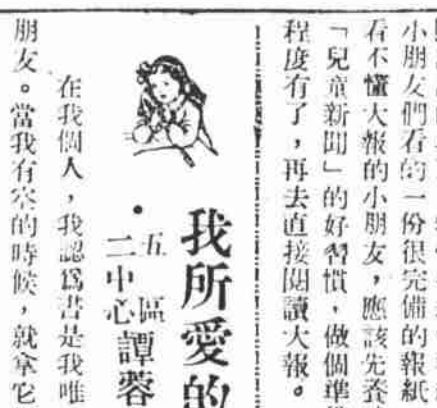 小朋友們看的一份很完備的報紙
看不懂大報的小朋友，應該先養
「兒童新聞」的好習慣，做個準
程度有了，再去直接閱讀大報。
我所愛的
五區
二中心
譚蓉
在我個人，我認爲書是我唯
朋友。當我有空的時候，就拿它